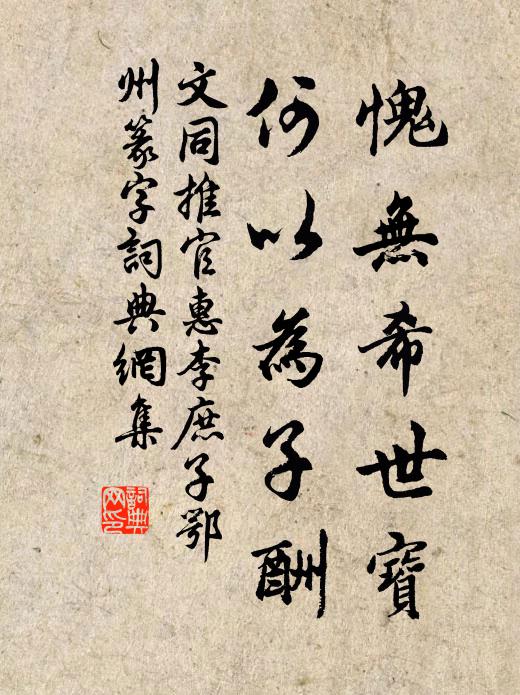 愧無希世寶
何以為子酬
文同推官惠李庶子鄂
州篆字詞典網集
詞典網印